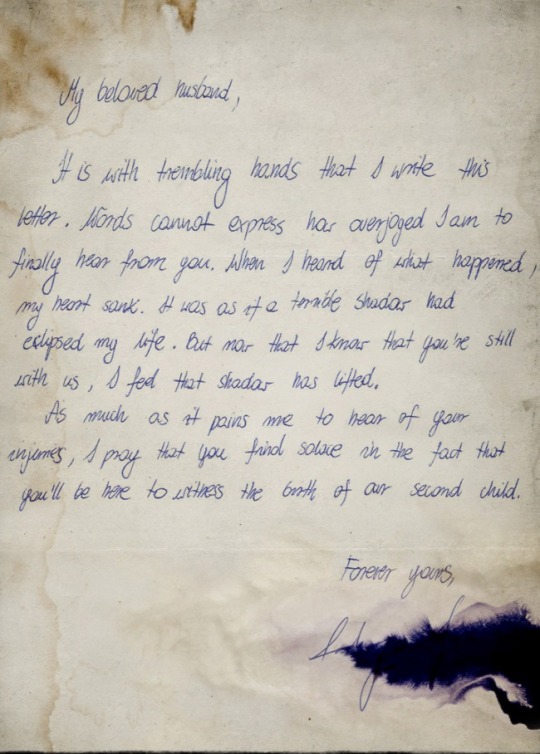 My beloved husband,
It is with trembling hands that I write this
letter. Words cannot express how overjoyed I am to
finally hear from you. When I heard of what happened,
my heart sank. It was as if a terrible shadow had
eclipsed my life. But now that I know that you're still
with us, I feel that shadow has lifted.
As much as it pains me to hear of your
injuries, I pray that you find solace in the fact that
you'll be here to witness the birth of our second child.
Forever yours,